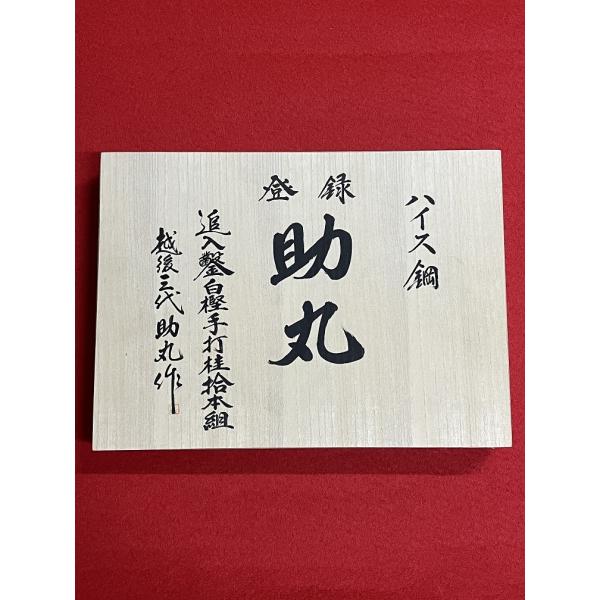 ハイス鋼
登録
助丸
追入鑿白樫手打桂拾本組
越後三代助丸作